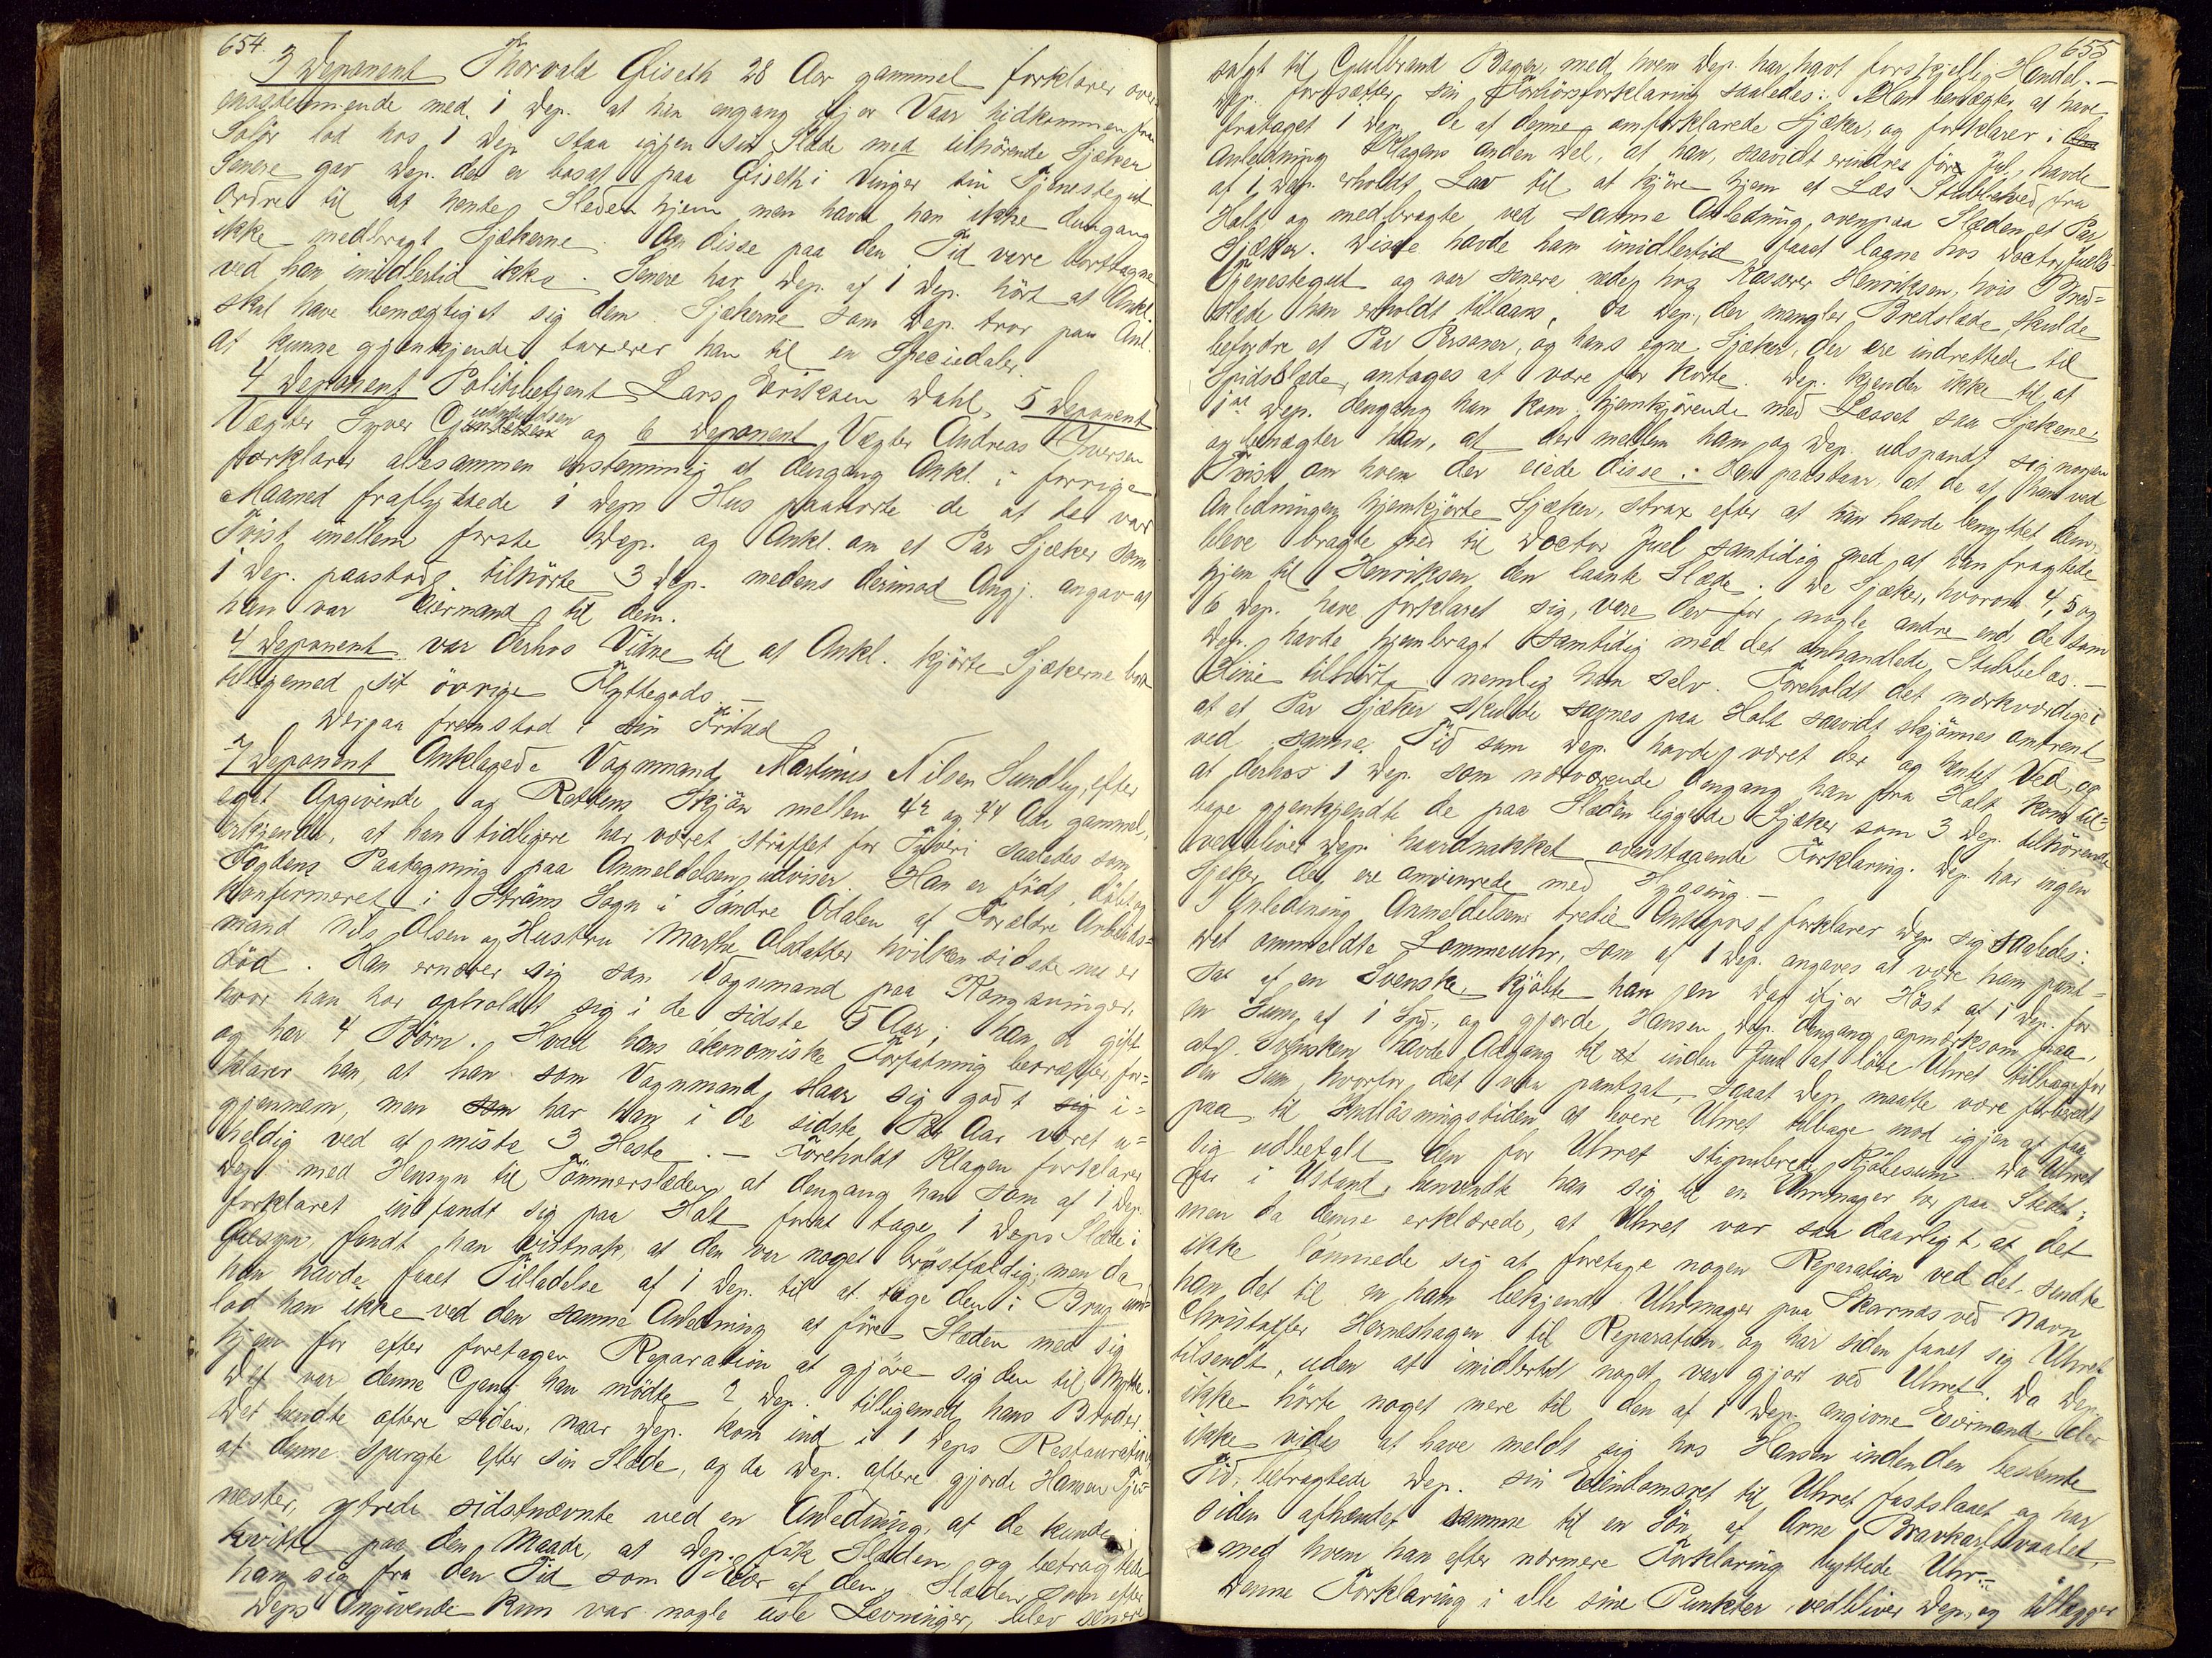 654.
3 Deponent Thorvald Giseth 28 Aar gammel forklarer over-
ensstemmende med 1 Dep. at han engang ifjor Vaar hidkommen fra
Solør lod hos 1 Dep staa igjen sin Slæde med tilhørende Sjækere
Senere gav Dep. der er bosat paa Giseth i Vinger sin Tjenestegut
Ordre til at hente Slæden hjem men havde han ikke dengang
ikke medbragt Sjækerne. Om disse paa den Tid vare borttagne
ved han imidlertid ikke. Senere har Dep. af 1 Dep. hørt at Ankl.
skal have bemægtiget sig dem. Sjækerne som Dep. tror paa Anl.
at kunne gjenkjende, taxerer han til en Speciedaler.
4 Deponent Politibetjent Lars Eriksen Dahl, 5 Deponent
Vægter Syver Gundersen og 6 Deponent Vægter Andreas Iversen
forklarer allesammen enstemmig at dengang Ankl. i forrige
Maaned fraflyttede 1 Deps Hus paahørte de at der var
Tvist imellem første Dep. og Ankl. om et Par Sjæker som
1 Dep. paastod tilhørte 3 Dep. medens derimod Angj. angav at
han var Eiermand til dem.
4 Deponent var derhos Vidne til at Ankl. kjørte Sjækerne bort
tilligemed sit øvrige Flyttegods. —
Derpaa fremstod i sin Frihed
7 Deponent Anklagede Vognmand Martinus Nilsen Sundby, efter
eget Opgivende og Rettens Skjøn mellem 42 og 44 Aar gammel,
erkjender, at han tidligere har været straffet for Tyveri saaledes som
Fogdens Paategning paa Anmeldelsen udviser. Han er født, døbt og
konfirmeret i Strøms Sogn i Søndre Odalen af Forældre Arbeids-
mand Nils Olsen og Hustru Marthe Olsdatter hvilken sidste nu er
død. Han ernærer sig som Vognmand paa Kongsvinger,
hvor han har opholdt sig i de sidste 5 Aar; han er gift
og har 4 Børn. Hvad hans økonomiske Forfatning betræffer, for-
klarer han, at han som Vognmand slaar sig godt sig i-
gjennem, men som har han i de sidste Par Aar været u-
heldig ved at miste 3 Heste. — Foreholdt Klagen forklarer
Dep. med Hensyn til Tømmerslæden, at dengang han som af 1 Dep.
forklaret indfandt sig paa Holt forat tage 1 Deps Slæde i
Øiesyn fandt han vistnok, at den var noget brøstfældig, men da
han havde faaet Tilladelse af 1 Dep. til at tage den i Brug und-
lod han ikke ved den samme Anledning at føre Slæden med sig
hjem for efter foretagen Reparation at gjøre sig den til Nytte.
Det var denne Gang han mødte 2 Dep. tilligemed hans Broder.
Det hendte oftere siden, naar Dep. kom ind i 1 Deps Restauration
at denne spurgte efter sin Slæde, og da Dep. oftere gjorde Hansen Tje-
nester, ytrede sidstnævnte ved en Anledning, at de kunde
kvitte paa den Maade, at Dep. fik Slæden, og betragtede
han sig fra den Tid som Eier af den. Slæden som efter
Deps Angivende kun var nogle usle Levninger, blev senere
655
solgt til Gulbrand Bager, med hvem Dep. har havt forskjellig Handel. —
Dep. fortsætter sin Forhørsforklaring saaledes: Han benægter at have
frataget 1 Dep. de af denne omforklarede Sjæker, og forklarer i
Anledning Klagens anden Del, at han, saavidt erindres før Jul, havde
af 1 Dep. erholdt Lov til at kjøre hjem et Læs Stubbeved fra
Holt og medbragte ved samme Anledning, ovenpaa Slæden et Par
Sjæker. Disse havde han imidlertid faaet laane hos Doctor Juels
Tjenestegut og var senere nede hos Kasserer Henriksen, hvis Bred-
slæde han erholdt tillaans, da Dep., der mangler Bredslæde skulde
befordre et Par Personer, og hans egne Sjæker, der ere indrettede til
Spidsslæde, antages at være for korte. Dep. kjender ikke til at
1ste Dep. dengang han kom hjemkjørende med Læsset saa Sjækene
og benægter han, at der mellem ham og Dep. udspandt sig nogen
Tvist om hvem der eiede disse: Han paastaar, at de af ham ved
Anledningen hjemkjørte Sjæker, strax efter at han havde benyttet dem,
bleve bragte ned til Doctor Juel samtidig med at han fragtede
hjem til Henriksen den laante Slæde. De Sjæker, hvorom 4, 5 og
6 Dep. have forklaret sig, vare derfor nogle andre end de som
Dep. havde hjembragt samtidig med det omhandlede Stubbelæs. —
Disse tilhørte nemlig ham selv. Foreholdt det mærkværdige i
at et Par Sjæker skulde savnes paa Holt saavidt skjønnes omtrent
ved samme Tid som Dep. havde været der og hentet Ved, og
at derhos 1 Dep. som nærværende dengang han fra Holt kom til-
bage gjenkjendte de paa Slæden liggende Sjæker som 3 Dep. tilhørende
vedbliver Dep. haardnakket ovenstaaende Forklaring. Dep. har ingen
Sjæker der ere omvundne med Hyssing. —
I Anledning Anmeldelsens tredie Ankepost forklarer Dep. sig saaledes:
Det ommeldte Lommeuhr, som af 1 Dep. angaves at være ham pant-
sat af en Svenske, kjøbte han en Dag ifjor Høst af 1 Dep. for
en Sum af 1 Spd., og gjorde Hansen, Dep. dengang opmærksom paa,
at Svensken havde Adgang til at inden Juul at løse Uhret tilbage for
den Sum, hvorfor det var pantsat, saaat Dep. maatte være forberedt
paa til Indløsningstiden at levere Uhret tilbage mod igjen at faa
sig udbetalt den for Uhret stipulerede Kjøbesum. Da Uhret
var i Ustand, henvendte han sig til en Uhrmager her paa Stedet;
men da denne erklærede, at Uhret var saa daarligt, at det
ikke lønnede sig at foretage nogen Reparation ved det, sendte
han det til en ham bekjendt Uhrmager paa Skarnæs ved Navn
Christoffer Herneshagen til Reparation, og har siden faaet sig Uhret
tilsendt, uden at imidlertid noget var gjort ved Uhret. Da Dep.
ikke hørte noget mere til den af 1 Dep. angivne Eiermand, eller
ikke vides at have meldt sig hos Hansen inden den bestemte
Tid, betragtede Dep. sin Eiendomsret til Uhret fastslaaet og har
siden afhændet samme til en Søn af Arne
med hvem han efter nærmere Forklaring byttede Uhr. —
Denne Forklaring i alle sine Punkter vedbliver Dep., og tillægger